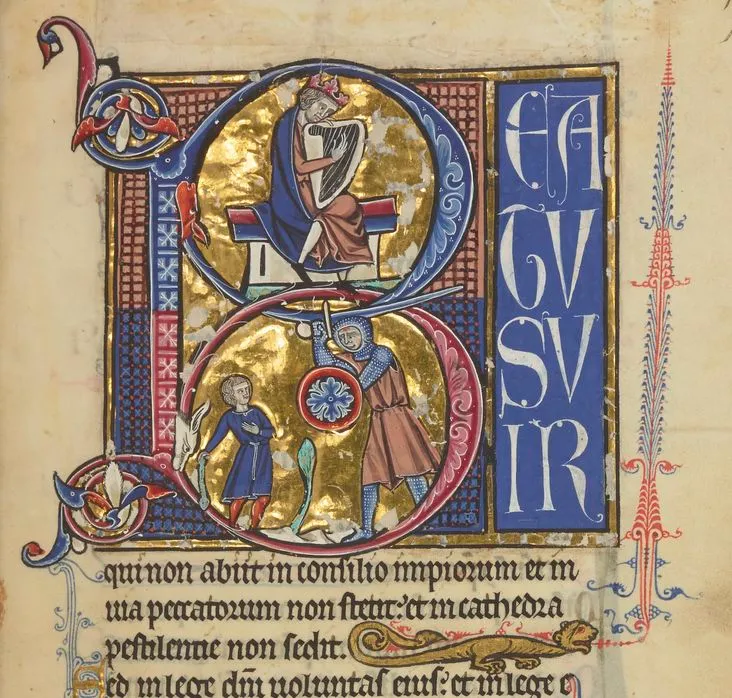 B
EA
TVS
VIR
qui non abiit in consilio impiorum et in
uia peccatorum non stetit: et in cathedra
pestilentie non sedit.
Sed in lege dm̄ uoluntas eius: et in lege e